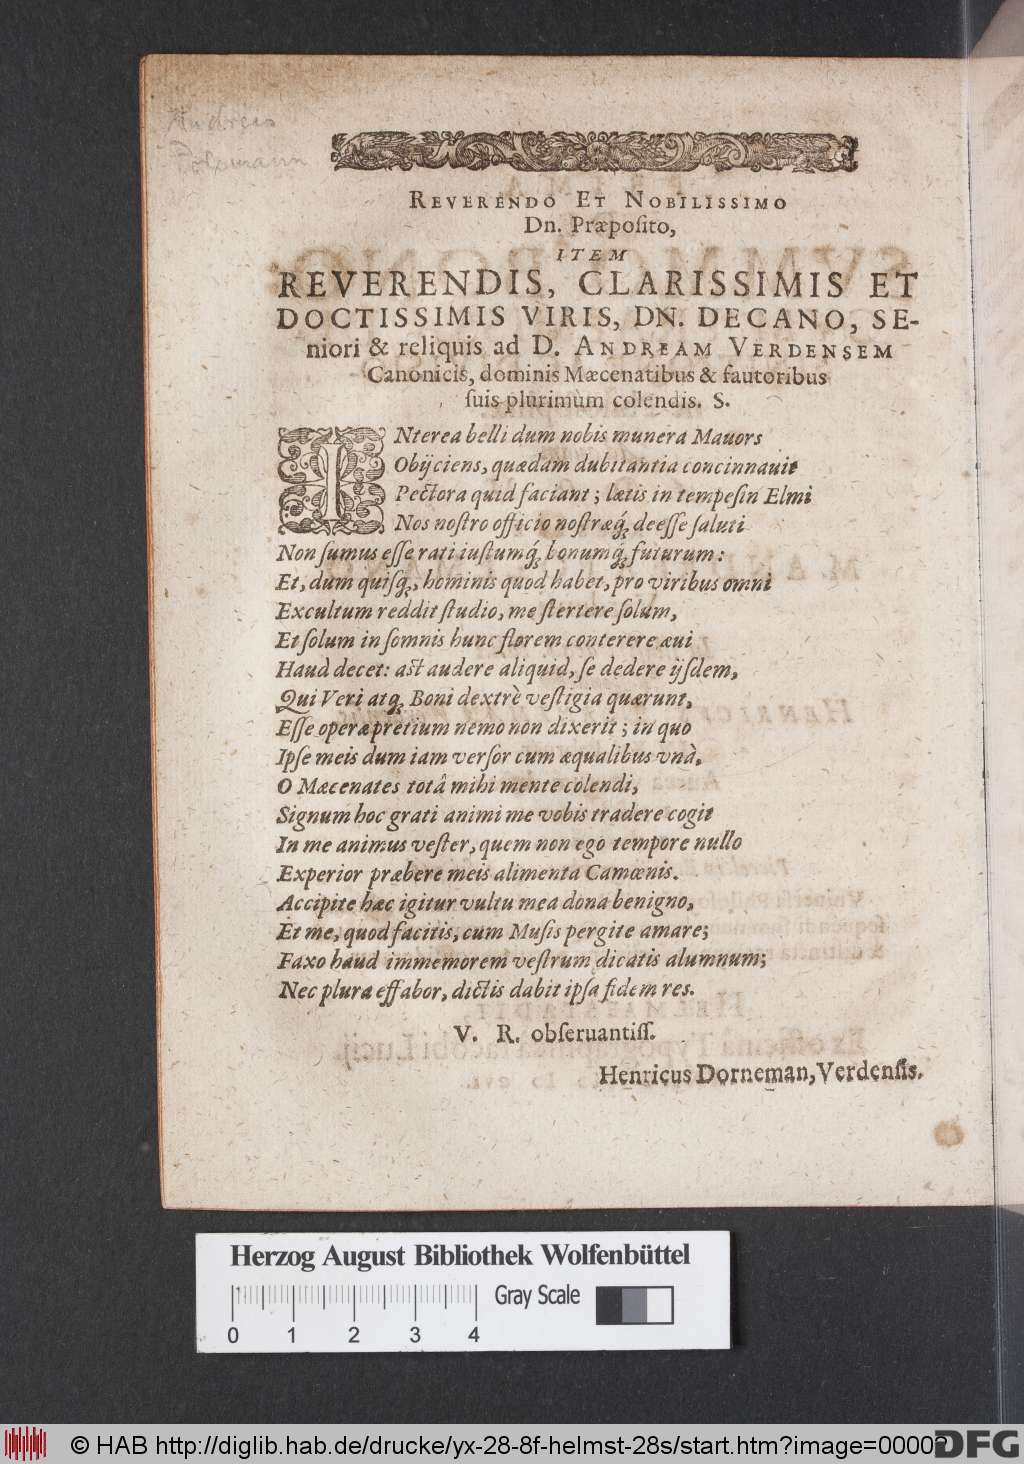 Andreas
REVERENDO ET NOBILISSIMO
Dn. Præposito,
ITEM
REVERENDIS, CLARISSIMIS ET
DOCTISSIMIS VIRIS, DN. DECANO, SE-
niori & reliquis ad D. ANDREAM VERDENSEM
Canonicis, dominis Mæcenatibus & fautoribus
suis plurimùm colendis. S.
INterea belli dum nobis munera Mauors
Obijciens, quædam dubitantia concinnauit
Pectora quid faciant; lætis in tempesin Elmi
Nos nostro officio nostræq́ꝫ deesse saluti
Non sumus esse rati iustumq́ꝫ bonumq́ꝫ futurum:
Et, dum quisqꝫ, hominis quod habet, pro viribus omni
Excultum reddit studio, me stertere solum,
Et solum in somnis hunc florem conterere æui
Haud decet: ast audere aliquid, se dedere ijsdem,
Qui Veri atqꝫ Boni dextrè vestigia quærunt,
Esse operæpretium nemo non dixerit; in quo
Ipse meis dum iam versor cum æqualibus vnà,
O Mæcenates totâ mihi mente colendi,
Signum hoc grati animi me vobis tradere cogit
In me animus vester, quem non ego tempore nullo
Experior præbere meis alimenta Camœnis.
Accipite hæc igitur vultu mea dona benigno,
Et me, quod facitis, cum Musis pergite amare;
Faxo haud immemorem vestrum dicatis alumnum;
Nec plura effabor, dictis dabit ipsa fidem res.
V. R. obseruantiss.
Henricus Dorneman, Verdensis.
Herzog August Bibliothek Wolfenbüttel
Gray Scale
0 1 2 3 4
© HAB http://diglib.hab.de/drucke/yx-28-8f-helmst-28s/start.htm?image=00002
DFG